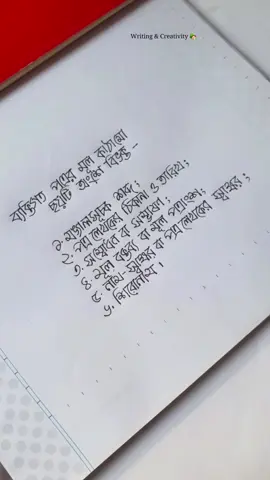 Writing & Creativity
ব্যক্তিগত পত্রের মূল কাঠামো
ছয়টি অংশে বিভক্ত –
১. মঙ্গলসূচক শব্দ ;
২. পত্র লেখকের ঠিকানা ও তারিখ ;
৩. সম্বোধন বা সম্ভাষণ ;
৪. মূল বক্তব্য বা মূল পত্রাংশ ;
৫. নাম-স্বাক্ষর বা পত্র লেখকের স্বাক্ষর ;
৬. শিরোনাম ।